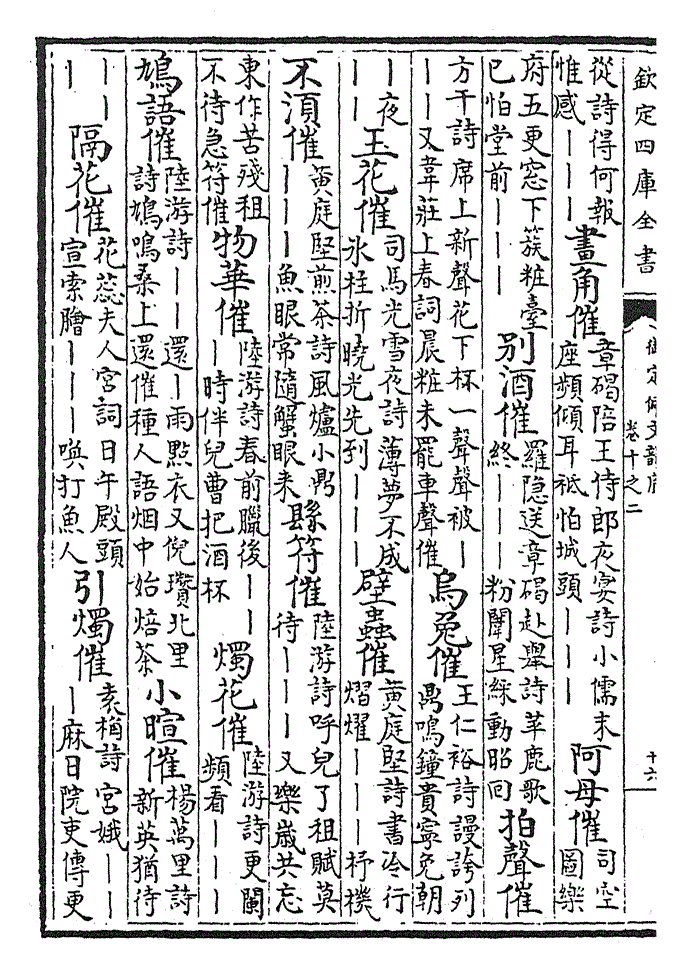 欽定四庫全書
御定佩文韻府
卷十之二
十六
從詩得何報
惟感｜｜｜
畫角催
章碣陪王侍郎夜宴詩小儒末
座頻傾耳祗怕城頭｜｜｜
阿母催
司空
圖樂
府五更窓下簇粧臺
已怕堂前｜｜｜
別酒催
羅隐送章碣赴舉詩苹鹿歌
終｜｜｜粉闈星綵動昭回
拍聲催
方干詩席上新聲花下杯一聲聲被｜
｜｜又韋莊上春詞晨粧未罷車聲催
烏兔催
王仁裕詩謾誇列
鼎鳴鐘貴寧免朝
｜夜
｜｜
玉花催
司馬光雪夜詩薄夢不成
氷柱折曉光先到｜｜｜
壁蟲催
黄庭堅詩書冷行
熠燿｜｜｜抒機
不須催
黄庭堅煎茶詩風爐小鼎
｜｜｜魚眼常隨蟹眼来
縣符催
陸游詩呼兒了租賦莫
待｜｜｜又樂歲共忘
東作苦殘租
不待急符催
物華催
陸游詩春前臘後｜｜
｜時伴兒曹把酒杯
燭花催
陸游詩更闌
頻看｜｜｜
鳩語催
陸游詩｜｜還｜雨㸃衣又倪瓚北里
詩鳩鳴桑上還催種人語烟中始焙茶
小暄催
楊萬里詩
新英猶待
｜｜
｜
隔花催
花蕊夫人宮詞日午殿頭
宣索膾｜｜｜喚打魚人
引燭催
袁桷詩宮娥｜｜
｜麻日院吏傳更